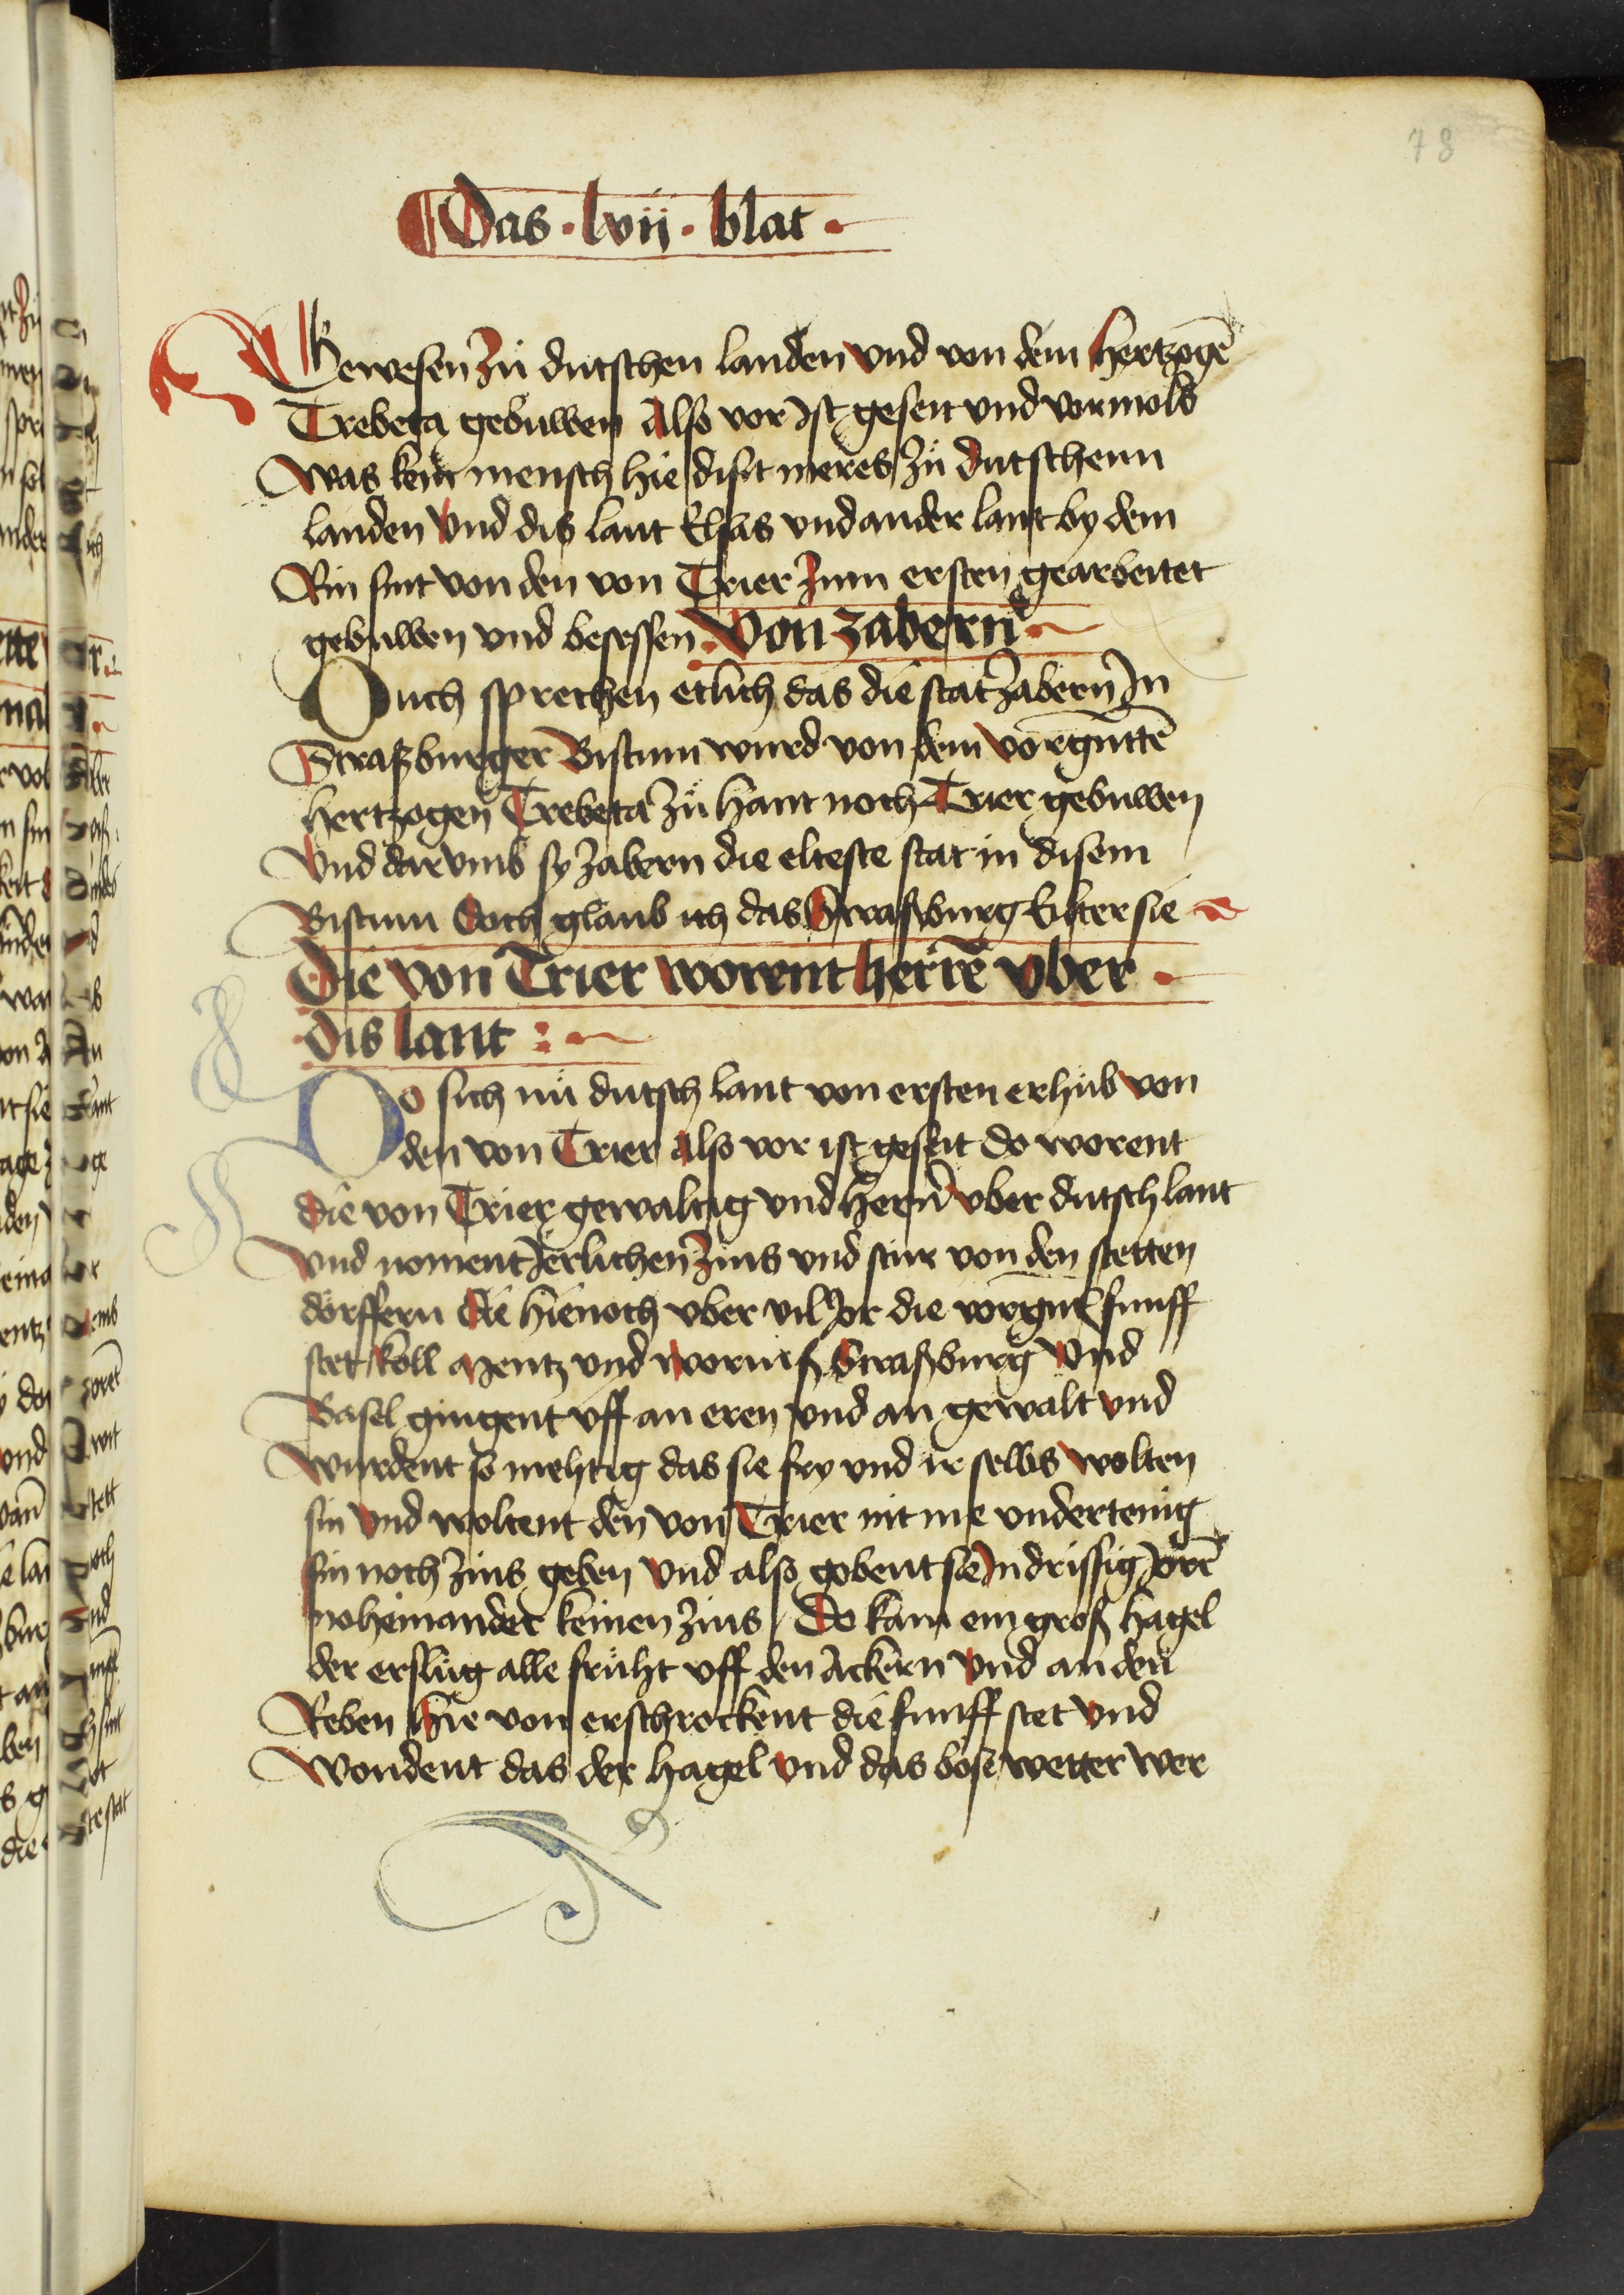 78
Das · lvii · blat ·
Gewesen zů dutschen landen vnd von dem hertzogē
Trebeta gebuwen Also vor Ist geseit vnd vormols
Was kein mensch hie disit meres zů dutschenn
landen Vnd dis lant Elsas vnd ander lant by dem
Rin sint von den von Trier zum ersten gearbeitet
gebuwen vnd besessen Von zabern
Ouch sprechen etlich das die stat zabern In
Straßburger Bistum wurd von dem vorgnttē
hertzogen Trebeta zů hant noch Trier gebuwen
Vnd darvmb sy zabern die elteste stat in disem
Bistum Doch glaub ich das Straßburg Elter sie
Die von Trier worent herrē vber
dis lant :
Do sich nů dutsch lant von ersten erhůb von
den von Trier Also vor ist geseit do worent
die von Trier gewaltig vnd hern vber dutsch lant
Vnd noment Jerlichen zins vnd stur von den stetten
dörffern die hienoch vber vil Jor die vorgnt funff
stet köll Mentz vnd wormß Straßburg Vnd
Basel gingent vff an eren vnd an gewalt vnd
Wurdent so mehtig das sie fry vnd ir selbs wolten
sin Vnd woltent den von Trier nit me vndertenig
sin noch zins geben Vnd also gobent sie In drissig Jorē
noheinander keinen zins Do kam ein groß hagel
der erslůg alle frůht vff den Ackern Vnd an den
Reben Hie von erschrockent die funff stet Vnd
Wondent das der hagel Vnd das böse wetter wer